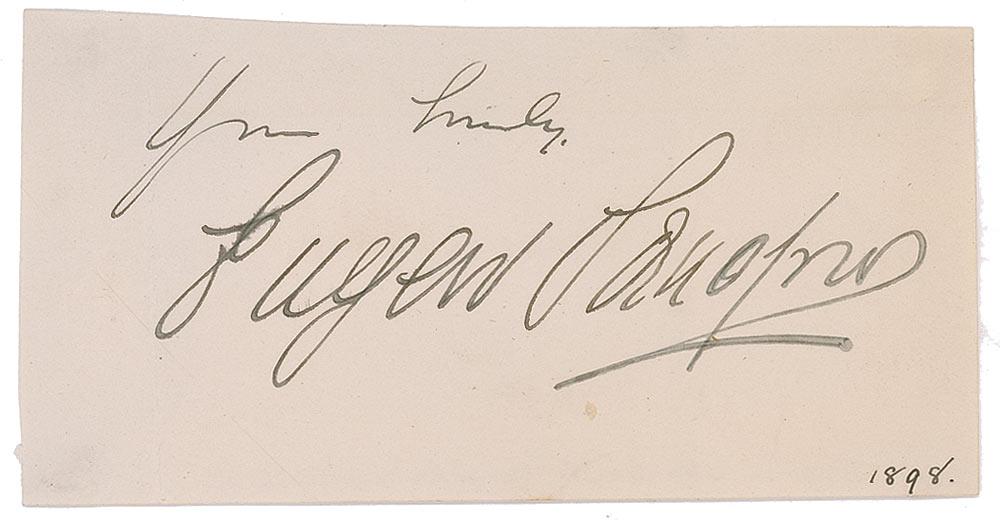 Yours Sincerely,
Eugen Sandow
1898.